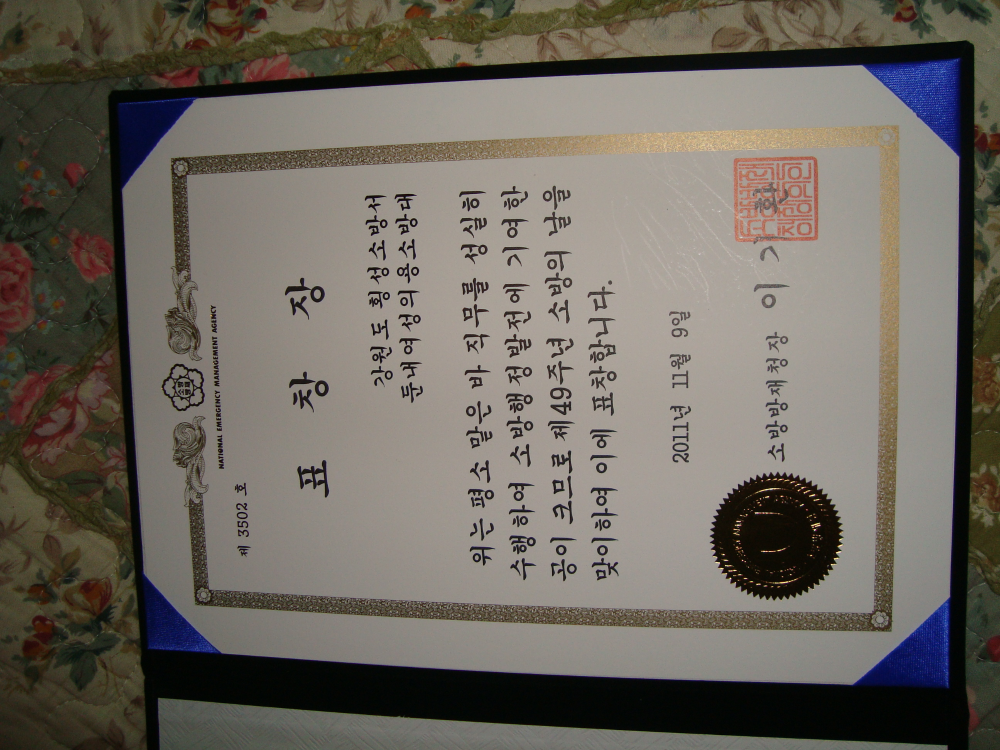 NATIONAL EMERGENCY MANAGEMENT AGENCY
제 3502 호
표 창 장
강원도 횡성소방서
둔내여성의용소방대
위는 평소 맡은 바 직무를 성실히
수행하여 소방행정발전에 기여한
공이 크므로 제49주년 소방의 날을
맞이하여 이에 표창합니다.
2011년 11월 9일
소방방재청장 이 기 환